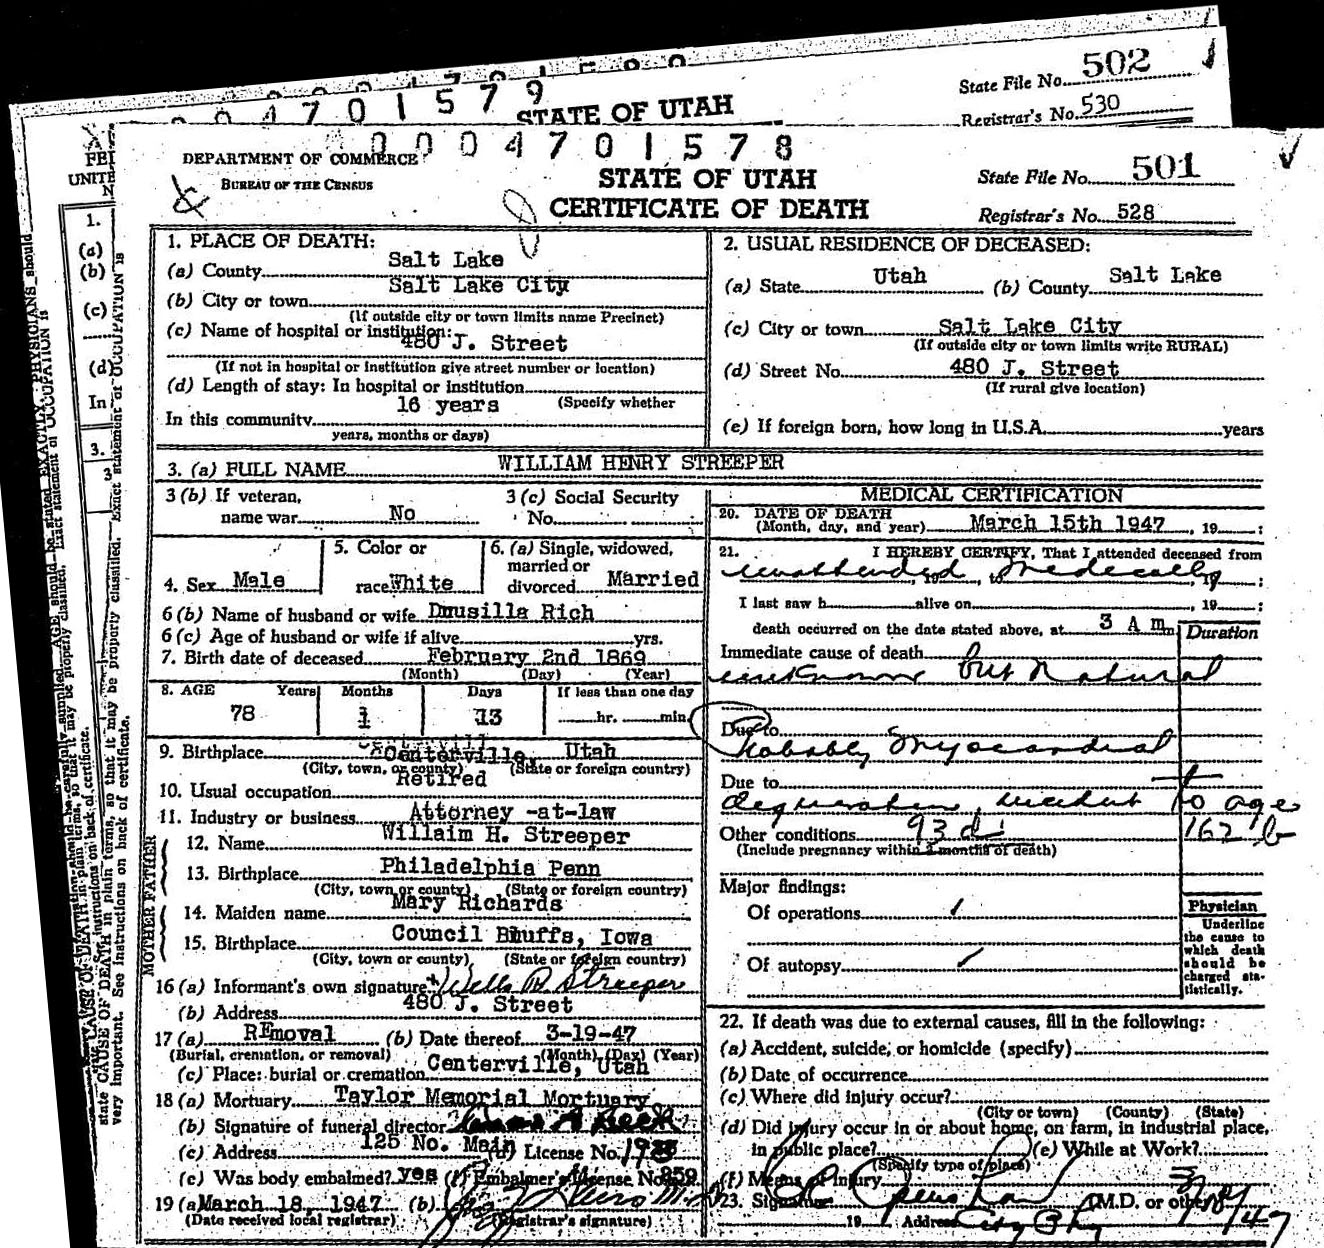 0004701579
STATE OF UTAH
State File No. 502
Registrar's No. 530
0004701578
DEPARTMENT OF COMMERCE
BUREAU OF THE CENSUS
STATE OF UTAH
CERTIFICATE OF DEATH
State File No. 501
Registrar's No. 528
1. PLACE OF DEATH:
(a) County Salt Lake
(b) City or town Salt Lake City
(If outside city or town limits name Precinct)
(c) Name of hospital or institution:
480 J. Street
(If not in hospital or institution give street number or location)
(d) Length of stay: In hospital or institution
(Specify whether
In this community 16 years
years, months or days)
2. USUAL RESIDENCE OF DECEASED:
(a) State Utah (b) County Salt Lake
(c) City or town Salt Lake City
(If outside city or town limits write RURAL)
(d) Street No. 480 J. Street
(If rural give location)
(e) If foreign born, how long in U.S.A. years
3. (a) FULL NAME WILLIAM HENRY STREEPER
3 (b) If veteran,
name war No
3 (c) Social Security
No.
4. Sex Male
5. Color or
race White
6. (a) Single, widowed,
married or
divorced Married
6 (b) Name of husband or wife Duusilla Rich
6 (c) Age of husband or wife if alive yrs.
7. Birth date of deceased February 2nd 1869
(Month) (Day) (Year)
8. AGE Years Months Days If less than one day
78 1 13 hr. min.
9. Birthplace Centerville, Utah
(City, town, or county) (State or foreign country)
10. Usual occupation Retired
11. Industry or business Attorney -at-law
FATHER
12. Name Willaim H. Streeper
13. Birthplace Philadelphia Penn
(City, town or county) (State or foreign country)
MOTHER
14. Maiden name Mary Richards
15. Birthplace Council Bluffs, Iowa
(City, town or county) (State or foreign country)
16 (a) Informant's own signature Wells R Streeper
(b) Address 480 J. Street
17 (a) REmoval (b) Date thereof 3-19-47
(Burial, cremation, or removal) (Month) (Day) (Year)
(c) Place: burial or cremation Centerville, Utah
18 (a) Mortuary Taylor Memorial Mortuary
(b) Signature of funeral director
(c) Address 125 No. Main (d) License No.
(e) Was body embalmed? yes (f) Embalmer's License No. 859
19 (a) March 18, 1947 (b)
(Date received local registrar) (Registrar's signature)
MEDICAL CERTIFICATION
20. DATE OF DEATH
(Month, day, and year) March 15th 1947, 19 :
21. I HEREBY CERTIFY, That I attended deceased from
unattended, 19 , to medically 19 ;
I last saw h alive on , 19 ;
death occurred on the date stated above, at 3 A m.
Duration
Immediate cause of death
unknown but Natural
Due to
Probably Myocardial
Due to
degeneration incident to age
Other conditions 93 d 162 b
(Include pregnancy within 3 months of death)
Major findings:
Of operations /
Of autopsy /
Physician
Underline
the cause to
which death
should be
charged sta-
tistically.
22. If death was due to external causes, fill in the following:
(a) Accident, suicide, or homicide (specify)
(b) Date of occurrence
(c) Where did injury occur?
(City or town) (County) (State)
(d) Did injury occur in or about home, on farm, in industrial place,
in public place? (e) While at Work?
(Specify type of place)
(f) Means of injury
23. Signature (M.D. or other) 3/18/47
19 Address City